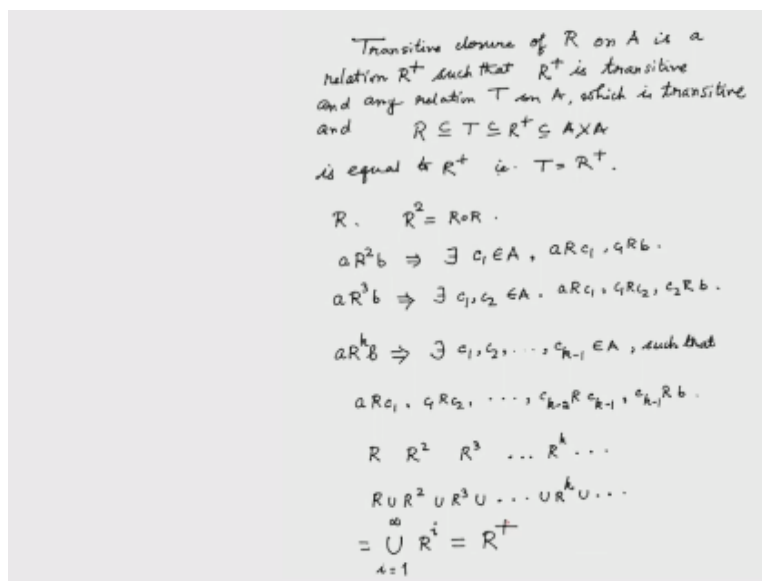 Transitive closure of R on A is a
relation R⁺ such that R⁺ is transitive
and any relation T on A, which is transitive
and R ⊆ T ⊆ R⁺ ⊆ A×A
is equal to R⁺ ie. T = R⁺.
R. R² = R∘R.
aR²b ⇒ ∃ c₁ ∈ A, aRc₁, c₁Rb.
aR³b ⇒ ∃ c₁, c₂ ∈ A. aRc₁, c₁Rc₂, c₂Rb.
aRᵏb ⇒ ∃ c₁, c₂, ..., cₖ₋₁ ∈ A, such that
aRc₁, c₁Rc₂, ..., cₖ₋₂Rcₖ₋₁, cₖ₋₁Rb.
R R² R³ ... Rᵏ...
R ∪ R² ∪ R³ ∪ ... ∪ Rᵏ ∪ ...
= ∞ ∪ i=1 Rⁱ = R⁺